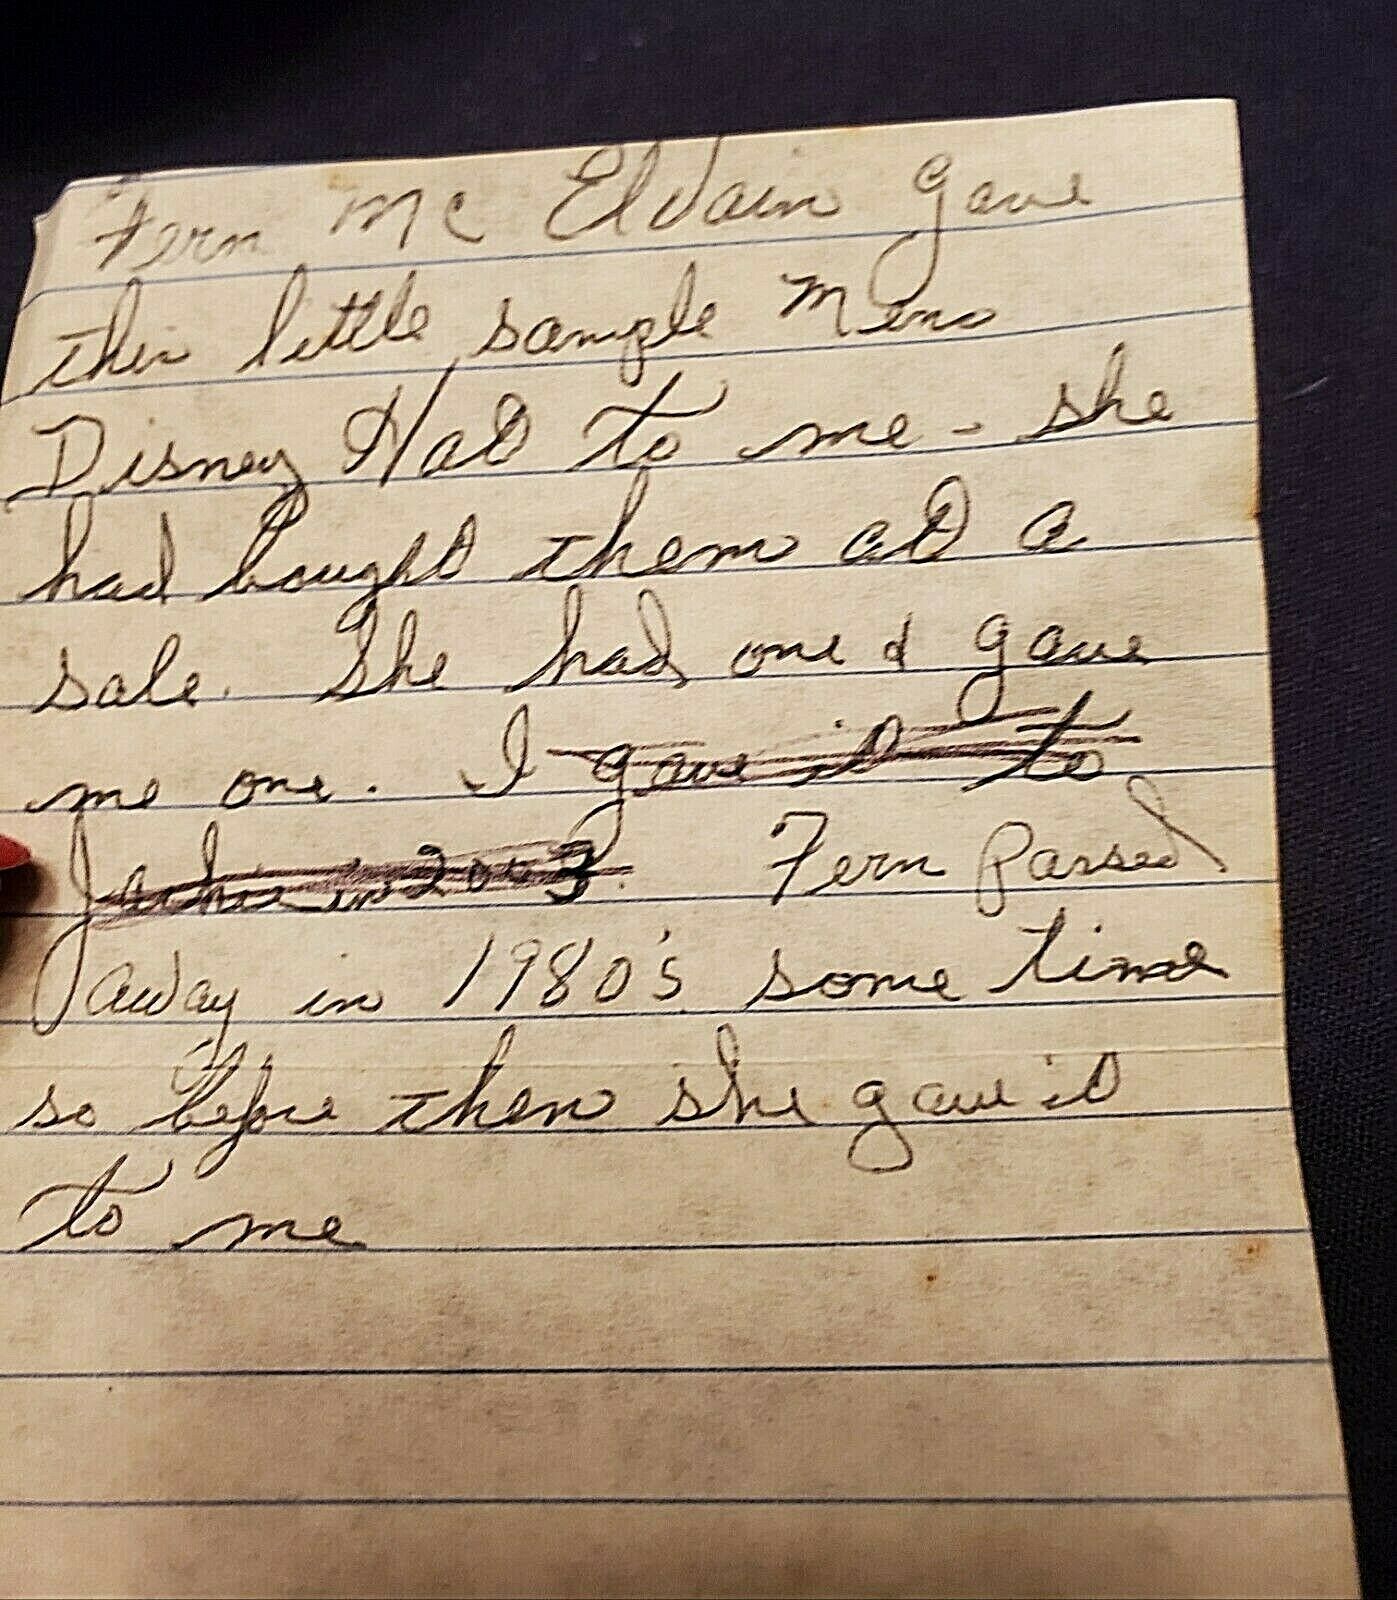 Fern Mc Elvain gave
this little sample Mens
Disney Hat to me - she
had bought them at a
sale. She had one & gave
me one. I gave it to
Jackie in 2003. Fern passed
away in 1980's some time
so before then she gave it
to me